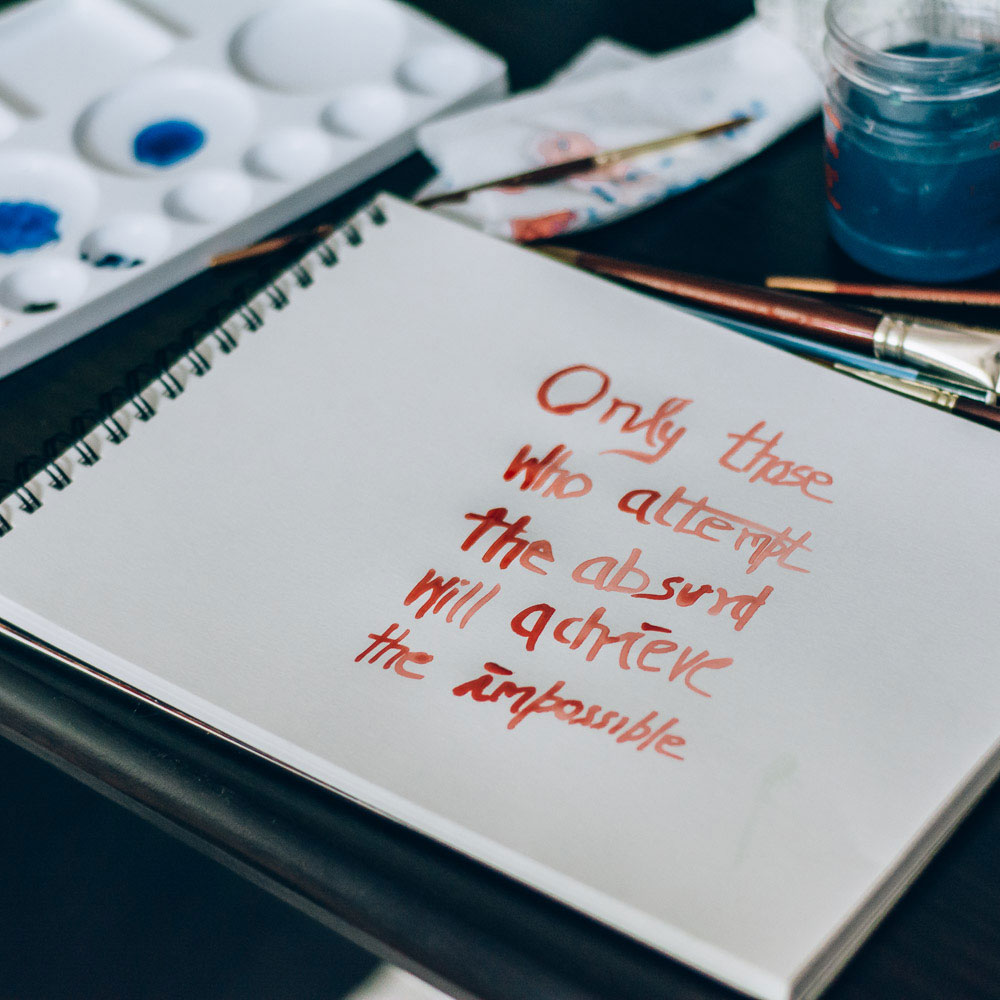 Only those
Who attempt
the absurd
Will achieve
the impossible